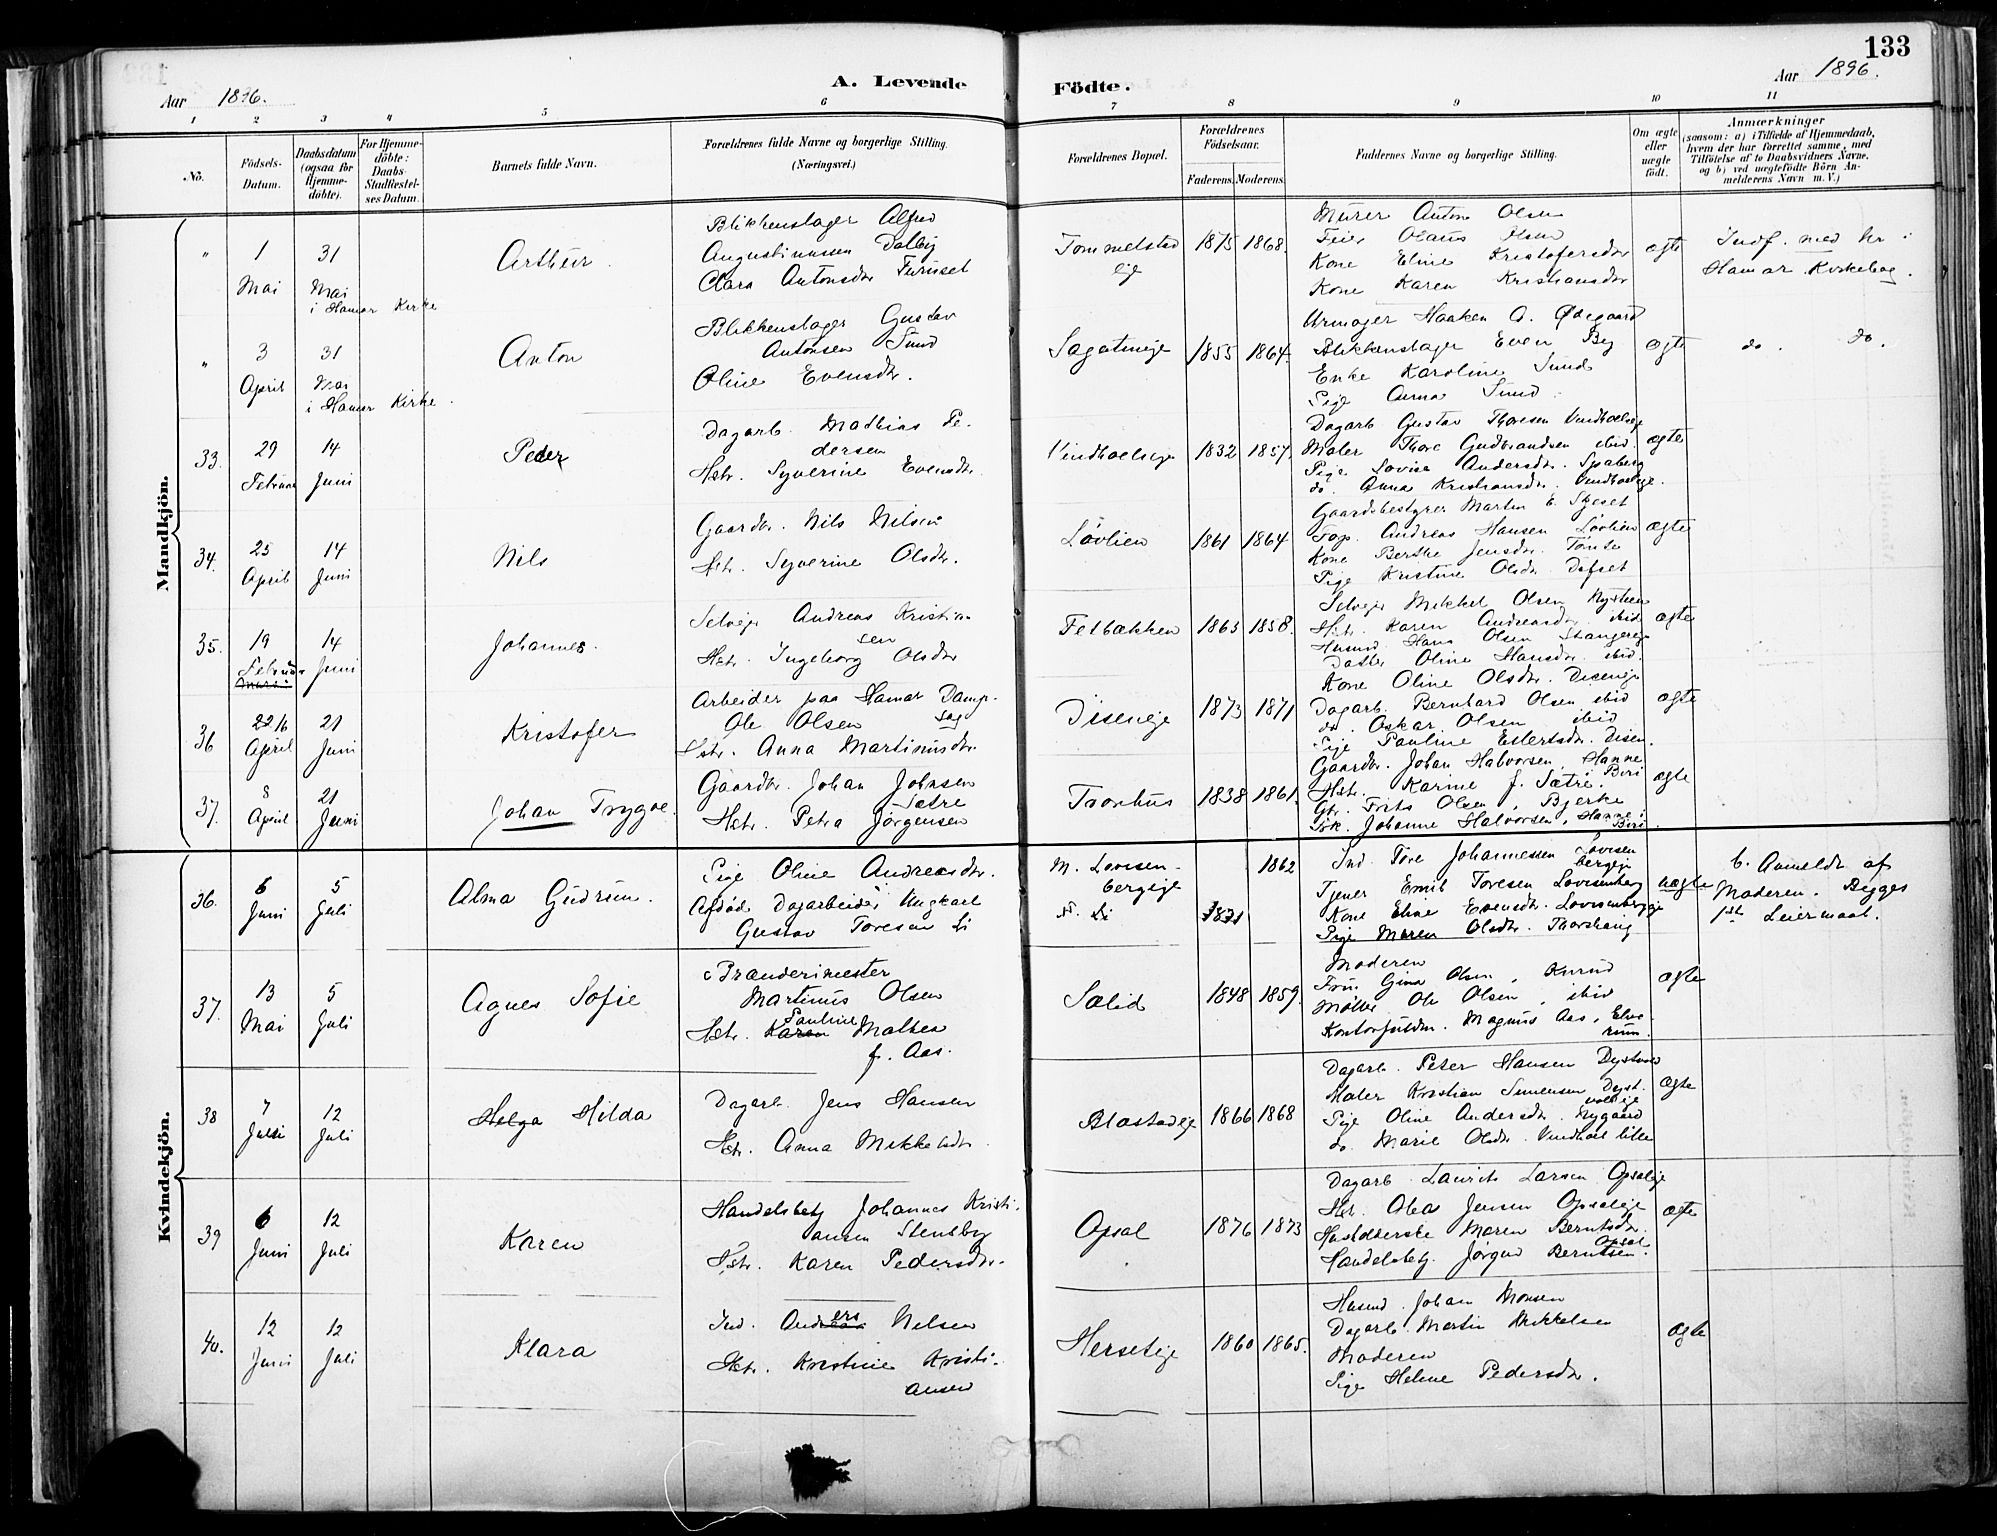 133
Aar 1896.
A. Levende Födte.
Aar 1896.
1 2 3 4 5 6 7 8 9 10 11
No.
Födsels-Datum.
Daabsdatum (ogsaa for Hjemme-döbte).
For Hjemme-döbte: Daabs-Stadfæstel-ses Datum.
Barnets fulde Navn.
Forældrenes fulde Navne og borgerlige Stilling.
(Næringsvei.)
Forældrenes Bopæl.
Forældrenes Födselsaar.
Faderens. Moderens.
Faddernes Navne og borgerlige Stilling.
Om ægte eller uægte födt.
Anmærkninger
(saasom: a) i Tilfælde af Hjemmedaab,
hvem der har forrettet samme, med
Tilföielse af to Daabsvidners Navne,
og b) ved uægtefödte Börn An-
melderens Navn m. V.)
Mandkjön.
" 1 Mai
31 Mai
i Hamar Kirke
Arthur.
Blikkenslager Alfred
Augustinusen Dalby
Clara Antonsdtr Furuset
Tommelstad
eje
1875 1868.
Murer Anton Olsen
Feier Olaus Olsen
Kone Eline Kristofersdtr
Kone Karen Kristiansdtr
ægte
Indf. med No i
Hamar Kirkebog.
" 3 April
31 Mai
i Hamar Kirke.
Anton
Blikkenslager Gustav
Antonsen Sund
Oline Evensdtr.
Sagatueje
1855 1864.
Urmager Haaken A. Ødegaard
Blikkenslager Even By
Enke Karoline Sund
Pige Anna Sund.
ægte
do. do.
33. 29 Februar
14 Juni
Peder
Dagarb. Mathias Pe-
dersen
Hstr. Syverine Evensdtr.
Vindhoelseje
1832 1857.
Dagarb Gustav Thoresen Vindhoelseje
Maler Thore Gudbrandsen ibid.
Pige Lovise Andersdtr. Spaberg
do. Anna Kristiansdtr. Vindhoelseje.
ægte
34. 25 April
14 Juni
Nils
Gaardbr. Nils Nilsen
Hstr. Syverine Olsdtr.
Løvlien
1861 1864
Gaardsbestyrer Martin E. Skjeset
Fop. Andreas Hansen Løvlien
Kone Berthe Jensdtr. Tønse
Pige Kristine Olsdtr. Dæfset
ægte
35. 19 Februar
14 Juni
Johannes.
Selvejer Andreas Kristian
sen
Hstr. Ingeborg Olsdtr
Felbakken
1863 1858.
Selvejer Mikkel Olsen Nysteen
Hstr. Karen Andreasdtr. ibid
Husmd Hans Olsen Stangereje
Datter Oline Hansdtr. ibid.
ægte
36 22/6 April
21 Juni
Kristofer
Arbeider paa Hamar Damp-
sag
Ole Olsen
Hstr. Anna Martinusdtr.
Diseneje
1873 1871
Kone Oline Olsdtr. Diseneje
Dagarb. Bernhard Olsen ibid
do. Oskar Olsen ibid
Pige Pauline Eilertsdtr. Disen.
ægte
37. 8 April
21 Juni
Johan Trygve.
Gaardbr. Johan Johnsen
Sætre
Hstr. Petra Jørgensen
Taarhus
1838 1861.
Gaardbr. Johan Halvorsen, Hanne,
Biri
Hstr. Karine f. Sætri.
Gbr. Frits Olsen, Bjerke
Frk. Johanne Halvorsen, Hanne i
Biri.
ægte
Kvindekjön.
36. 6 Juni
5 Juli
Alma Gudrun.
Pige Oline Andreasdtr.
Afdøde Dagarbeider, Ungkarl
Gustav Toresen Li
M. Lovisen-
bergeje
F. Li
1871 1862
Ind. Tore Johannessen Lovisen
bergeje
Tjener Emil Toresen Lovisenberg
Kone Eline Evensdtr. Lovisenbergeje
Pige Maren Olsdtr. Thorshaug
uægte
b. Anmeldt af
Moderen. Begges
1ste Leiermaal.
37. 13 Mai
5 Juli
Agnes Sofie
Brænderimester
Martinus Olsen
Pauline
Hstr. Karen Mathea
f. Aas.
Sælid
1848 1859.
Moderen
Fru Gina Olsen, Kurud
Møller Ole Olsen, ibid
Kontorfuldm. Magnus Aas, Elve-
rum.
ægte
38 7 Juli
12 Juli
Helga Hilda
Dagarb. Jens Hansen
Hstr. Anna Mikkelsdtr.
Blastadeje
1866 1868
Dagarb. Peter Hansen Dystvold
Maler Kristian Simensen Dyst-
voldeje
Pige Oline Andersdtr. Nygaard
do Marie Olsdtr. Vindhoel lille
ægte
39 6 Juni
12 Juli
Karen
Handelsbetj Johannes Kristi-
ansen Stensby
Hstr. Karen Pedersdtr.
Opsal
1876 1873
Dagarb. Laurits Larsen Opsaleje
Hstr. Olea Jensen Opsaleje
Husholderske Maren Berntsdtr.
Opsal
Handelsbetj. Jørgen Berntsen.
ægte
40. 12 Juni
12 Juli
Klara
Ind. Anders Nilsen
Hstr. Kristine Kristi-
ansen
Herseteje
1860 1865.
Husmd. Johan Monsen
Dagarb. Martin Mikkelsen
Moderen
Pige Helene Pedersdtr.
ægte